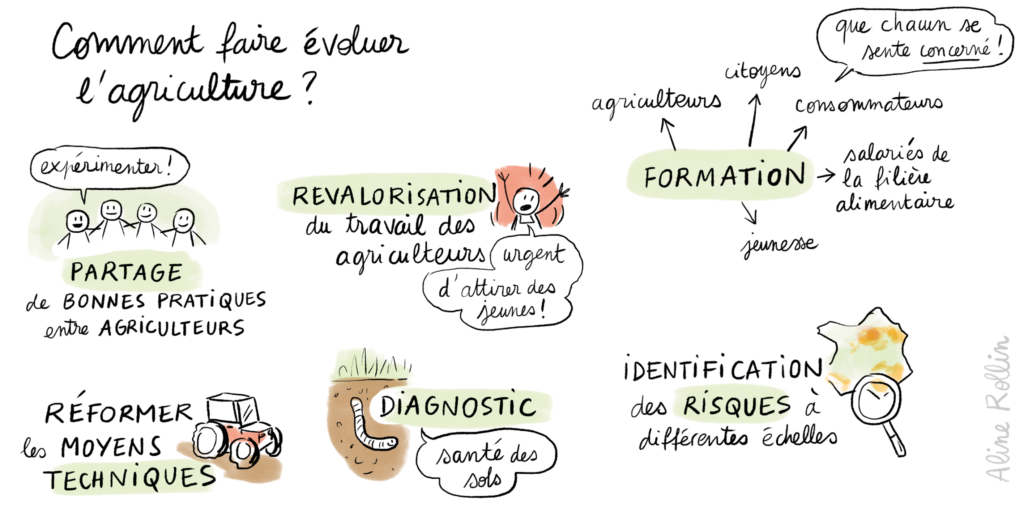 Comment faire évoluer
l'agriculture ?
expérimenter !
PARTAGE
de BONNES PRATIQUES
entre AGRICULTEURS
REVALORISATION
du travail des
agriculteurs
urgent
d'attirer des
jeunes !
que chacun se
sente concerné !
citoyens
agriculteurs
consommateurs
FORMATION
salariés de
la filière
alimentaire
jeunesse
RÉFORMER
les MOYENS
TECHNIQUES
DIAGNOSTIC
santé des
sols
IDENTIFICATION
des RISQUES à
différentes échelles
Aline Rollin